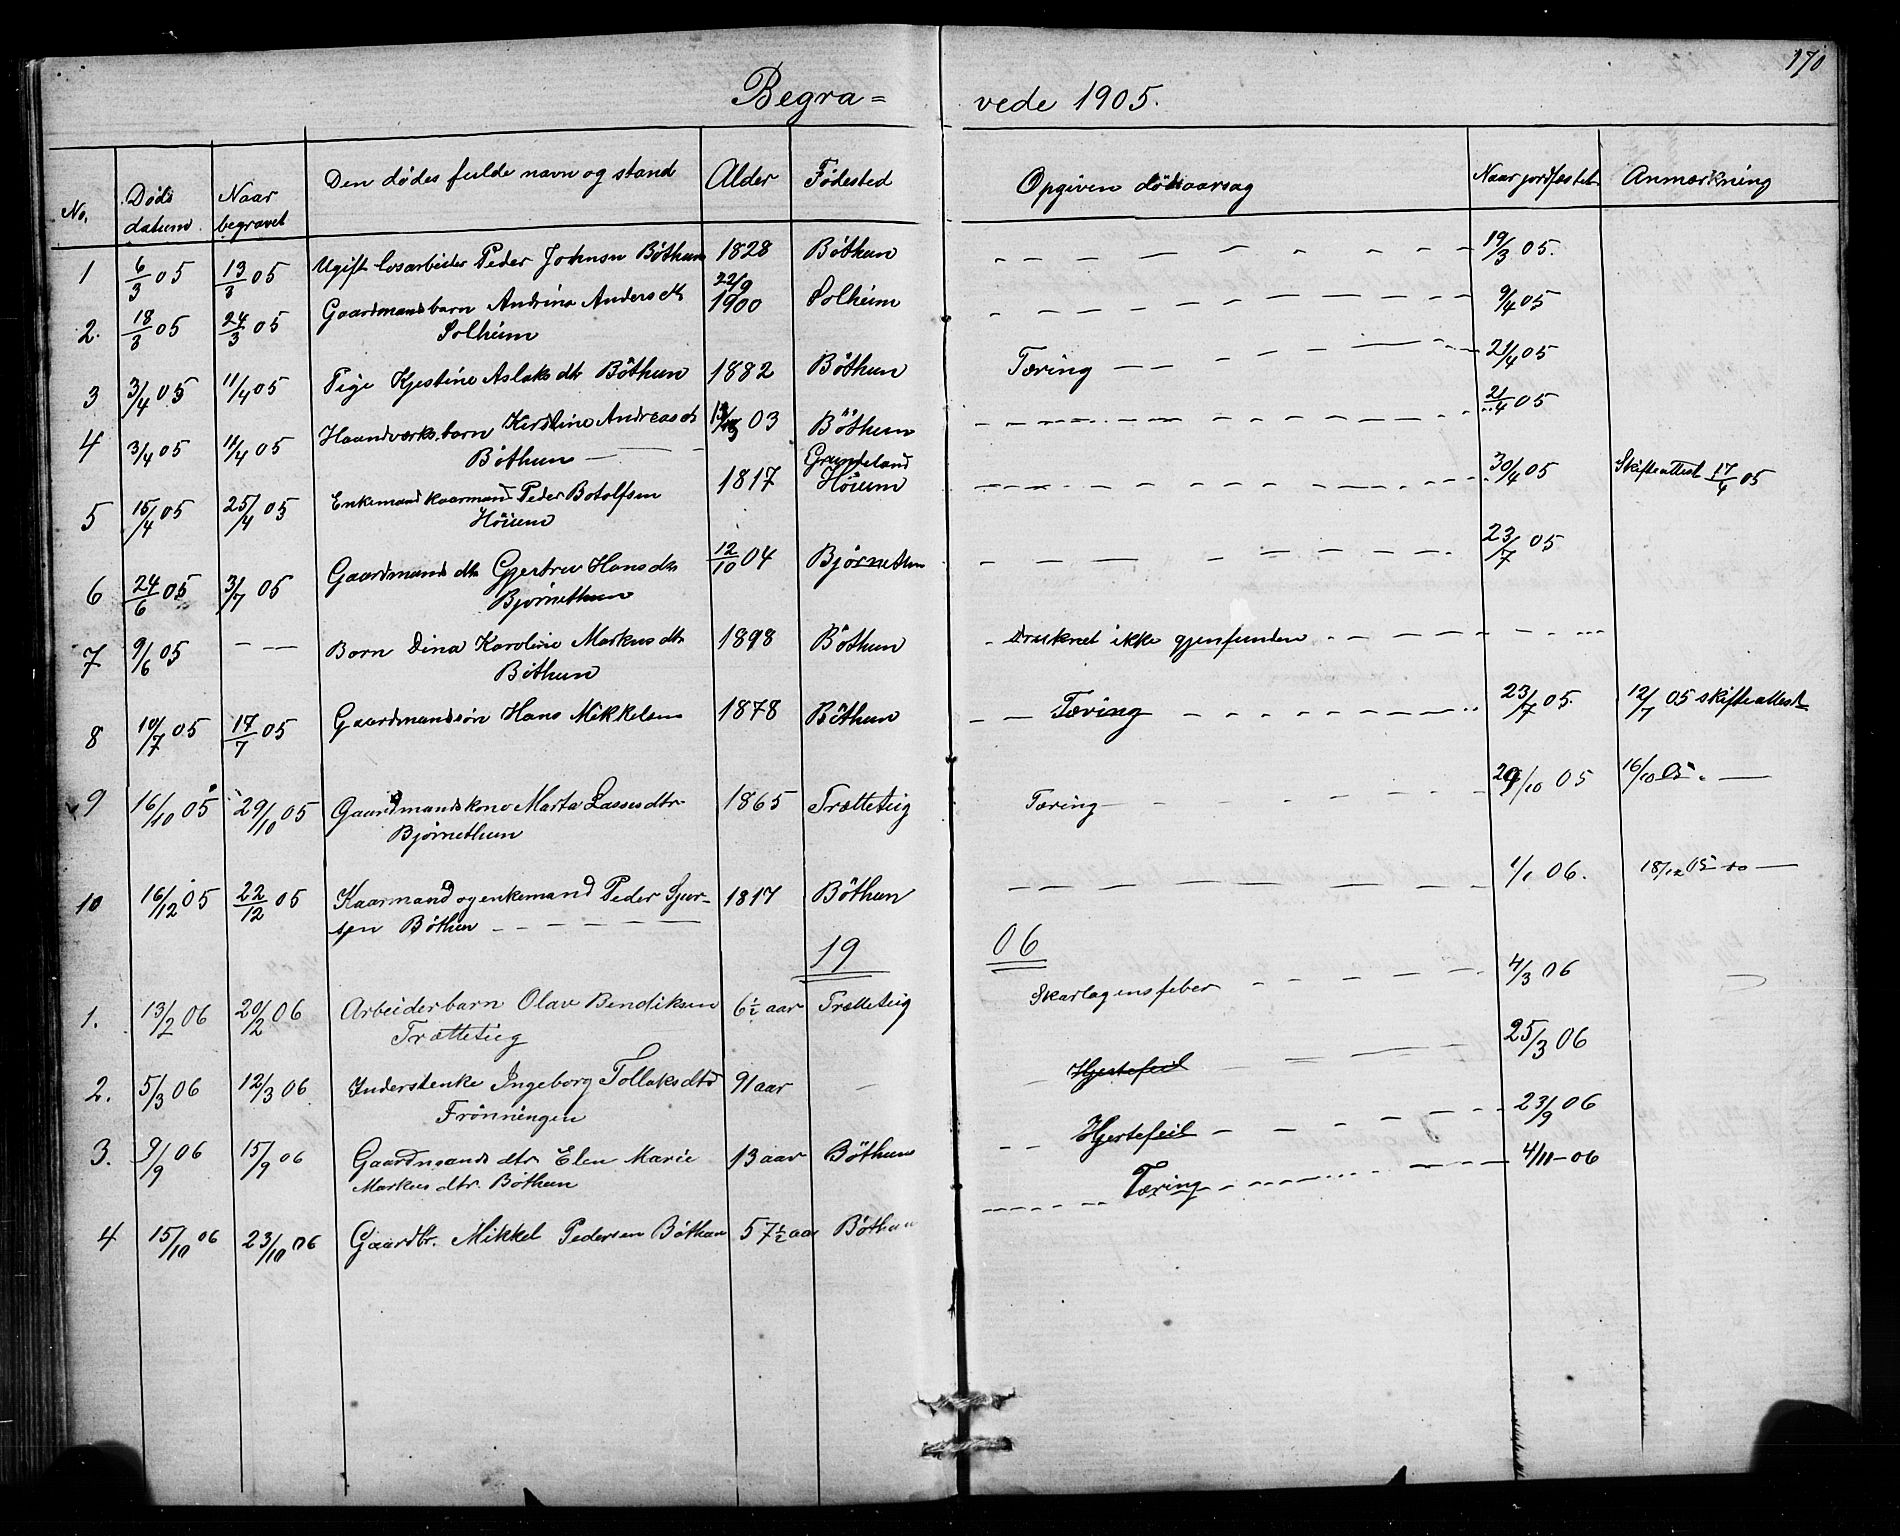 170
Begra= vede 1905.
No. Døds datum Naar begravet Den dødes fulde navn og stand Alder Fødested Opgiven dødsaarsag Naar jordfæstet Anmærkning
1 6/3 05 13/3 05 Ugift losarbeider Peder Johnsen Böthun 1828 Böthun 19/3 05.
2. 18/3 05 24/3 05 Gaardmandsbarn Andrina Andersdt 22/9 1900 Solheim 9/4 05
Solheim
3 3/4 05 11/4 05 Pige Kjestine Aslaksdtr Böthun 1882 Böthun Tæring — — 21/4 05
4 3/4 05 11/4 05 Haandværks.barn Kirstine Andreasdt 03 Böthun 21/4 05
Böthun —
5 15/4 05 25/4 05 Enkemand kaarmand Peder Botolfsen 1817 Grindeland Höium 30/4 05 Skifteattest 17/4 05
Höium
6 24/6 05 3/7 05 Gaardmands dtr Gjertrev Hansdtr 12/10 04 Bjørnethun 23/7 05
Bjørnethun
7 9/6 05 — — Barn Dina Karoline Markusdtr 1898 Böthun Druknet ikke gjenfunden
Böthun
8 10/7 05 17/7 05 Gaardmandssön Hans Mikkelsen 1878 Böthun Tæring 23/7 05. 12/7 05 skifteattest
9 16/10 05 29/10 05 Gaardmandskone Marta Lassesdtr 1865 Trætteteig Tæring 29/10 05 16/10 05. —
Bjørnethun
10 16/12 05 22/12 05 Kaarmand og enkemand Peder Sjur- 1817 Böthun 1/1 06. 18/12 05 do —
sen Böthun
19 06
1. 13/2 06 20/2 06 Arbeiderbarn Olav Bendiksen 6½ aar Trætteteig Skarlagensfeber 4/3 06
Trætteteig
2. 5/3 06 12/3 06 Inderstenke Ingeborg Tollaksdtr 91 aar — Hjertefeil 25/3 06
Frönningen
3. 9/9 06 15/9 06 Gaardmands dtr. Elen Marie 13 aar Böthun Hjertefeil 23/9 06
Markus dtr. Böthun
4 15/10 06 23/10 06 Gaardbr. Mikkel Pedersen Böthun 57½ aa Böthun Tæring 4/11-06